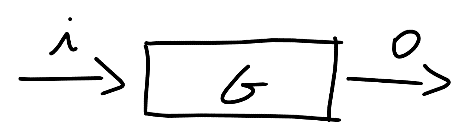 i
G
O